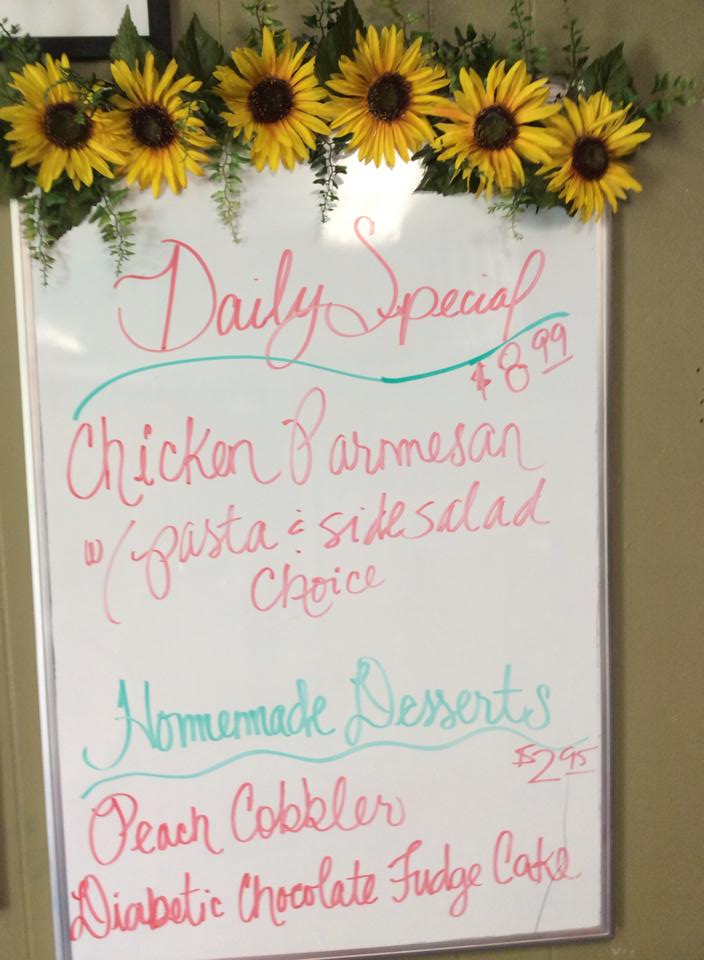 Daily Special
$8.99
Chicken Parmesan
w/ pasta & side salad
Choice
Homemade Desserts
$2.95
Peach Cobbler
Diabetic Chocolate Fudge Cake